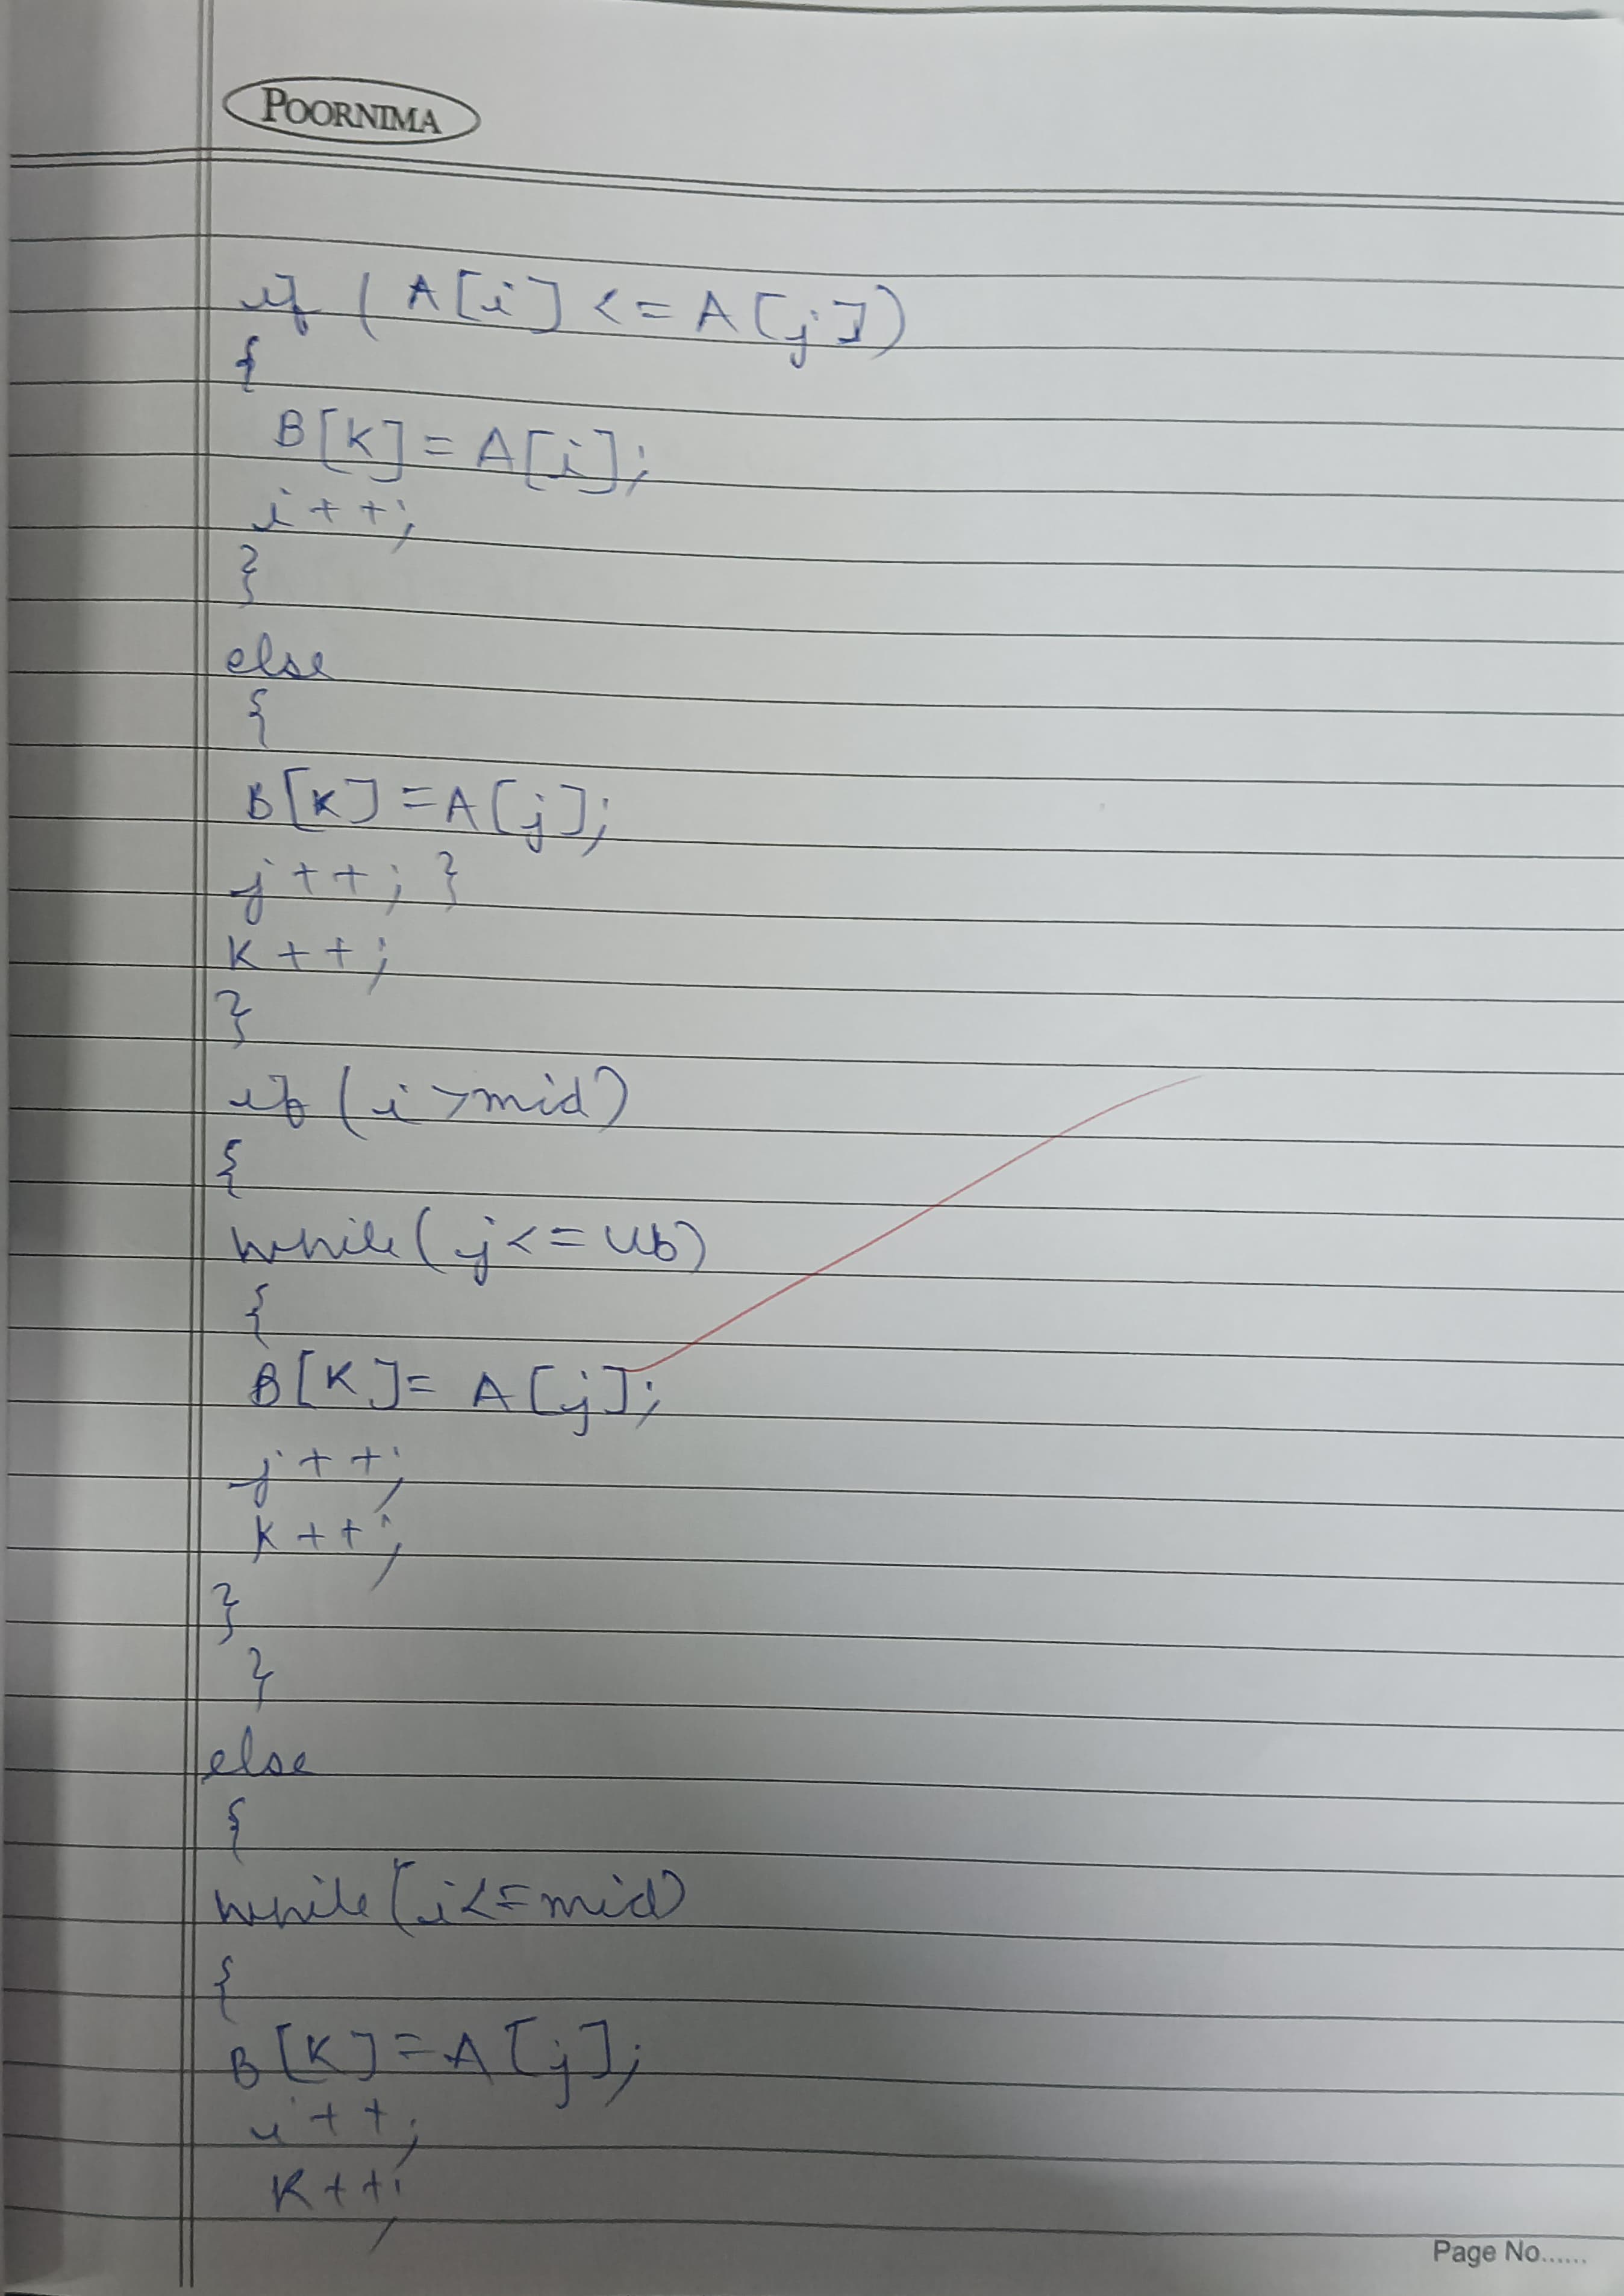 POORNIMA
if ( A[i] <= A[j])
{
B[K] = A[i];
i++;
}
else
{
B[K] = A[j];
j++; }
K++;
}
if (i > mid)
{
while( j <= ub)
{
B[K] = A[j];
j++;
K++;
}
}
else
{
while( i <= mid)
{
B[K] = A[j];
i++;
K++;
Page No......